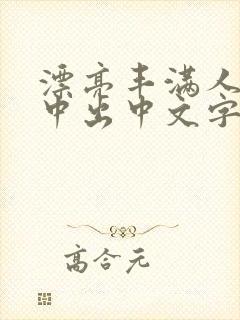 漂亮丰满人
中出中文字
高合元